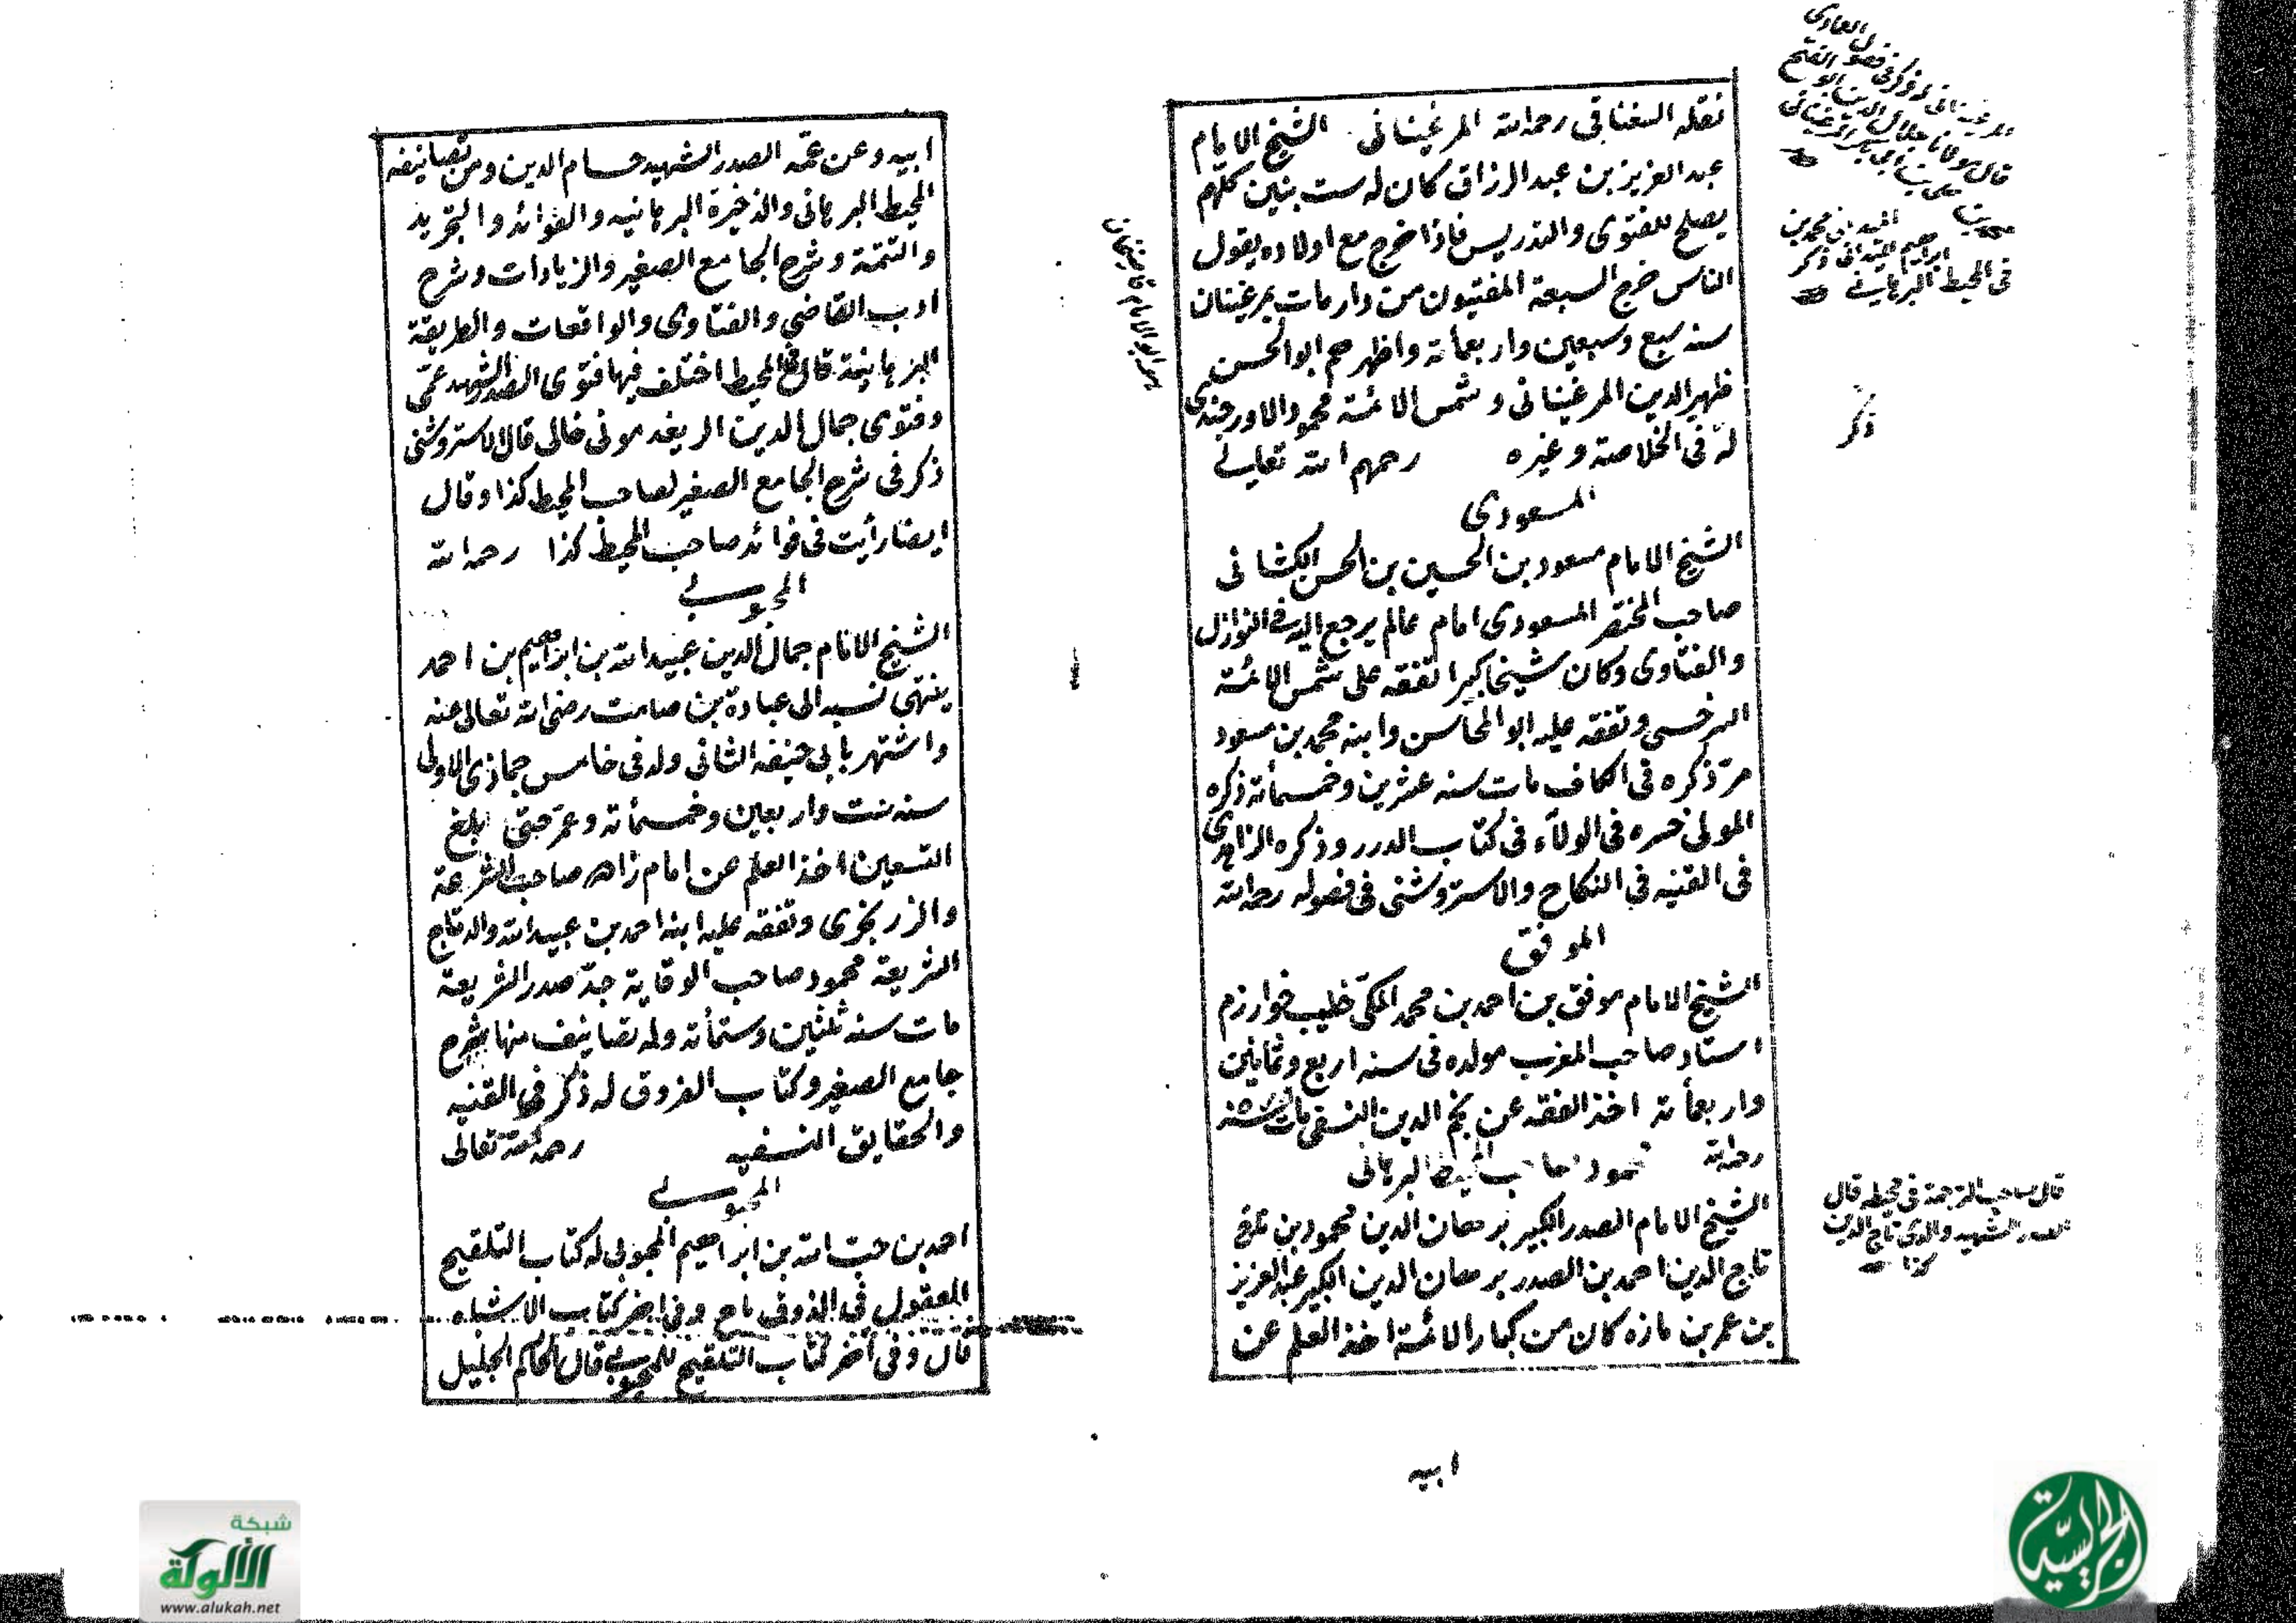 نقله السغناقى رحمه الله المرغينانى الشيخ الامام
عبد العزيز بن عبد الرزاق كان له ست بنين كلهم
يصلح للفتوى والتدريس فاذا خرج مع اولاده يقول
الناس خرج السبعة المفتيون من دار مات بمرغينان
سنه سبع وسبعين واربعمائة واظهرهم ابو الحسن
ظهير الدين المرغينانى وشمس الائمة محمود الاورجندى
له فى الخلاصة وغيره رحمهم الله تعالى
المسعودى
الشيخ الامام مسعود بن الحسين بن الحسن الكشانى
صاحب المختصر المسعودى امام عالم يرجع اليه فى النوازل
والفتاوى وكان شيخا كبيرا تفقه على شمس الائمة
السرخسى وتفقه عليه ابو المحاسن وابنه محمد بن مسعود
مرّ ذكره فى الكاف مات سنه عشرين وخمسمأئة ذكره
المولى خسره فى الولآء فى كتاب الدرر وذكره الزاهدى
فى القنيه فى النكاح والاستروشنى فى فصوله رحمه الله
الموفق
الشيخ الامام موفق بن احمد بن محمد المكى خطيب خوارزم
استاد صاحب المغرب مولده فى سنه اربع وثمانين
واربعمأئة اخذ الفقه عن نجم الدين النسفى مات سنه
رحمه الله محمود صاحب المحيط البرهانى
الشيخ الامام الصدر الكبير برهان الدين محمود بن
تاج الدين احمد بن الصدر برهان الدين الكبير عبد العزيز
بن عمر بن مازه كان من كبار الائمة اخذ العلم عن
ابيه
قال مولانا جلال الدين
ابراهيم الميدانى ذكر
فى المحيط البرهانى
ذكر
قال صاحب الترجمة فى محيطه قال
الصدر الشهيد والدى تاج الدين
كذا
ابيه وعن عمّه الصدر الشهيد حسام الدين ومن تصانيفه
المحيط البرهانى والذخيرة البرهانيه والفوائد والتجريد
والتتمة وشرح الجامع الصغير والزيادات وشرح
ادب القاضى والفتاوى والواقعات والطريقة
البرهانية قال فى المحيط اختلف فيها فتوى الصدر الشهيد عمّى
وفتوى جمال الدين الريغدمونى خالى قال الاستروشنى
ذكر فى شرح الجامع الصغير لصاحب المحيط كذا وقال
ايضا رأيت فى فوائد صاحب المحيط كذا رحمه الله
المحبوبى
الشيخ الامام جمال الدين عبيد الله بن ابراهيم بن احمد
ينتهى نسبه الى عبادة بن صامت رضى الله تعالى عنه
واشتهر بابى حنيفه الثانى ولد فى خامس جماذى الاولى
سنه ست واربعين وخمسمأئة وعمّر حتى بلغ
التسعين اخذ العلم عن امام زاده صاحب الشرعة
والزرنجرى وتفقه عليه ابنه احمد بن عبيد الله والد تاج
الشريعة محمود صاحب الوقاية جدّ صدر الشريعة
مات سنه ثلثين وستمأئة وله تصانيف منها شرح
جامع الصغير وكتاب الفروق له ذكر فى القنيه
والحقايق النسفيه رحمه الله تعالى
المحبوبى
احمد بن عبيد الله بن ابراهيم المحبوبى له كتاب التلقيح
المعقول فى الفروق وفى اخر كتاب الاشباه
قال وفى آخر كتاب التلقيح للمحبوبى قال الحاكم الجليل
شبكة
الألوكة
www.alukah.net